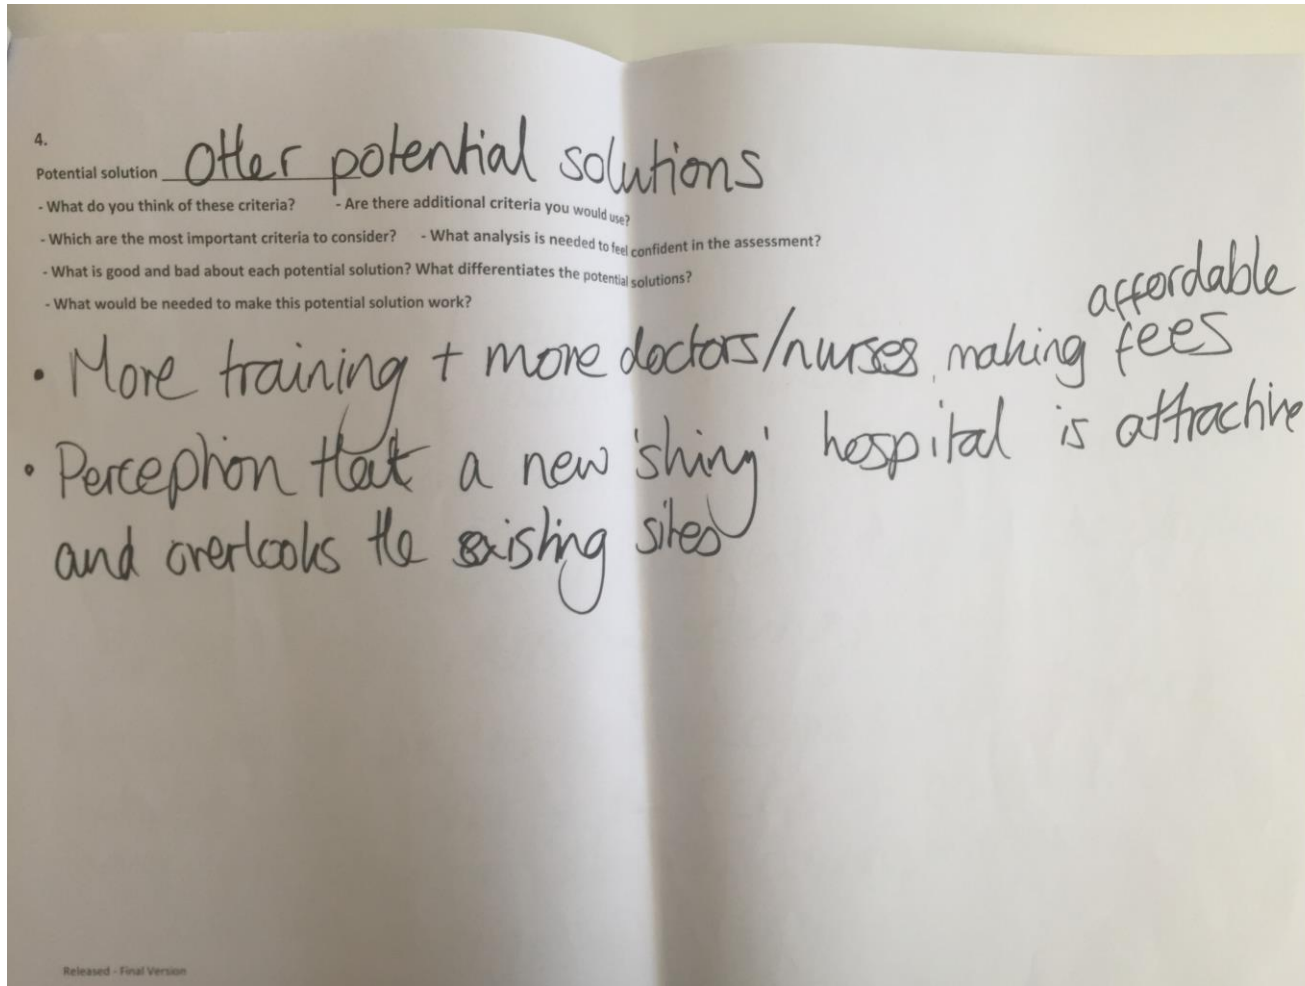 4.
Potential solution Other potential solutions
- What do you think of these criteria? - Are there additional criteria you would use?
- Which are the most important criteria to consider? - What analysis is needed to feel confident in the assessment?
- What is good and bad about each potential solution? What differentiates the potential solutions?
- What would be needed to make this potential solution work?
affordable
• More training + more doctors/nurses, making fees
• Perception that a new 'shiny' hospital is attractive
and overlooks the existing sites
Released - Final Version